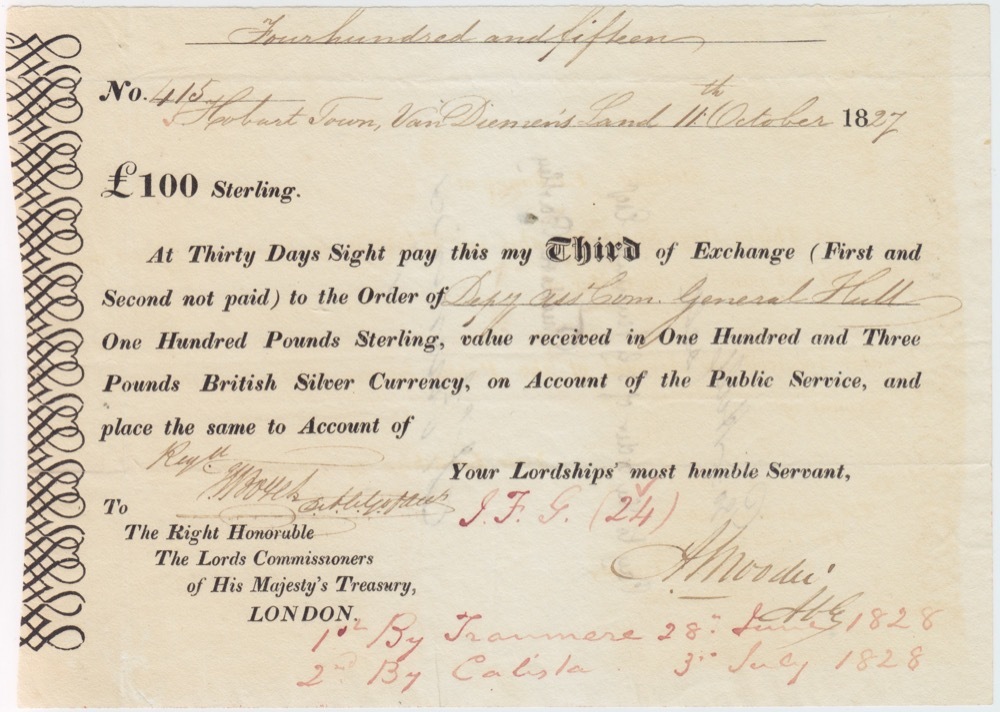 Four hundred and fifteen
No. 415
Hobart Town, Van Diemen's Land 11th October 1827
£100 Sterling.
At Thirty Days Sight pay this my Third of Exchange (First and
Second not paid) to the Order of Depy Asst Com. General Hull
One Hundred Pounds Sterling, value received in One Hundred and Three
Pounds British Silver Currency, on Account of the Public Service, and
place the same to Account of
Your Lordships' most humble Servant,
J. F. G. (24)
To
The Right Honorable
The Lords Commissioners
of His Majesty's Treasury,
LONDON.
A Moodie
1st By Tranmere 28th June 1828
2nd By Calista 3rd July 1828